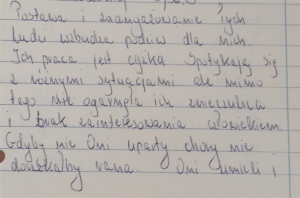 Postawa i zaangażowanie tych
ludzi wzbudza podziw dla nich.
Ich praca jest ciężka spotykają się
z różnymi sytuacjami ale mimo
tego nie ogarnęła ich znieczulica
i brak zainteresowania człowiekiem
Gdyby nie Oni uparty chory nie
doczekałby rana Oni umieli i